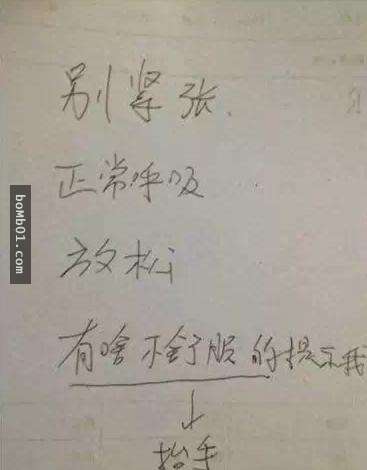 别紧张.
正常呼吸
放松
有啥不舒服的提示我
↓
抬手
boMb01.com